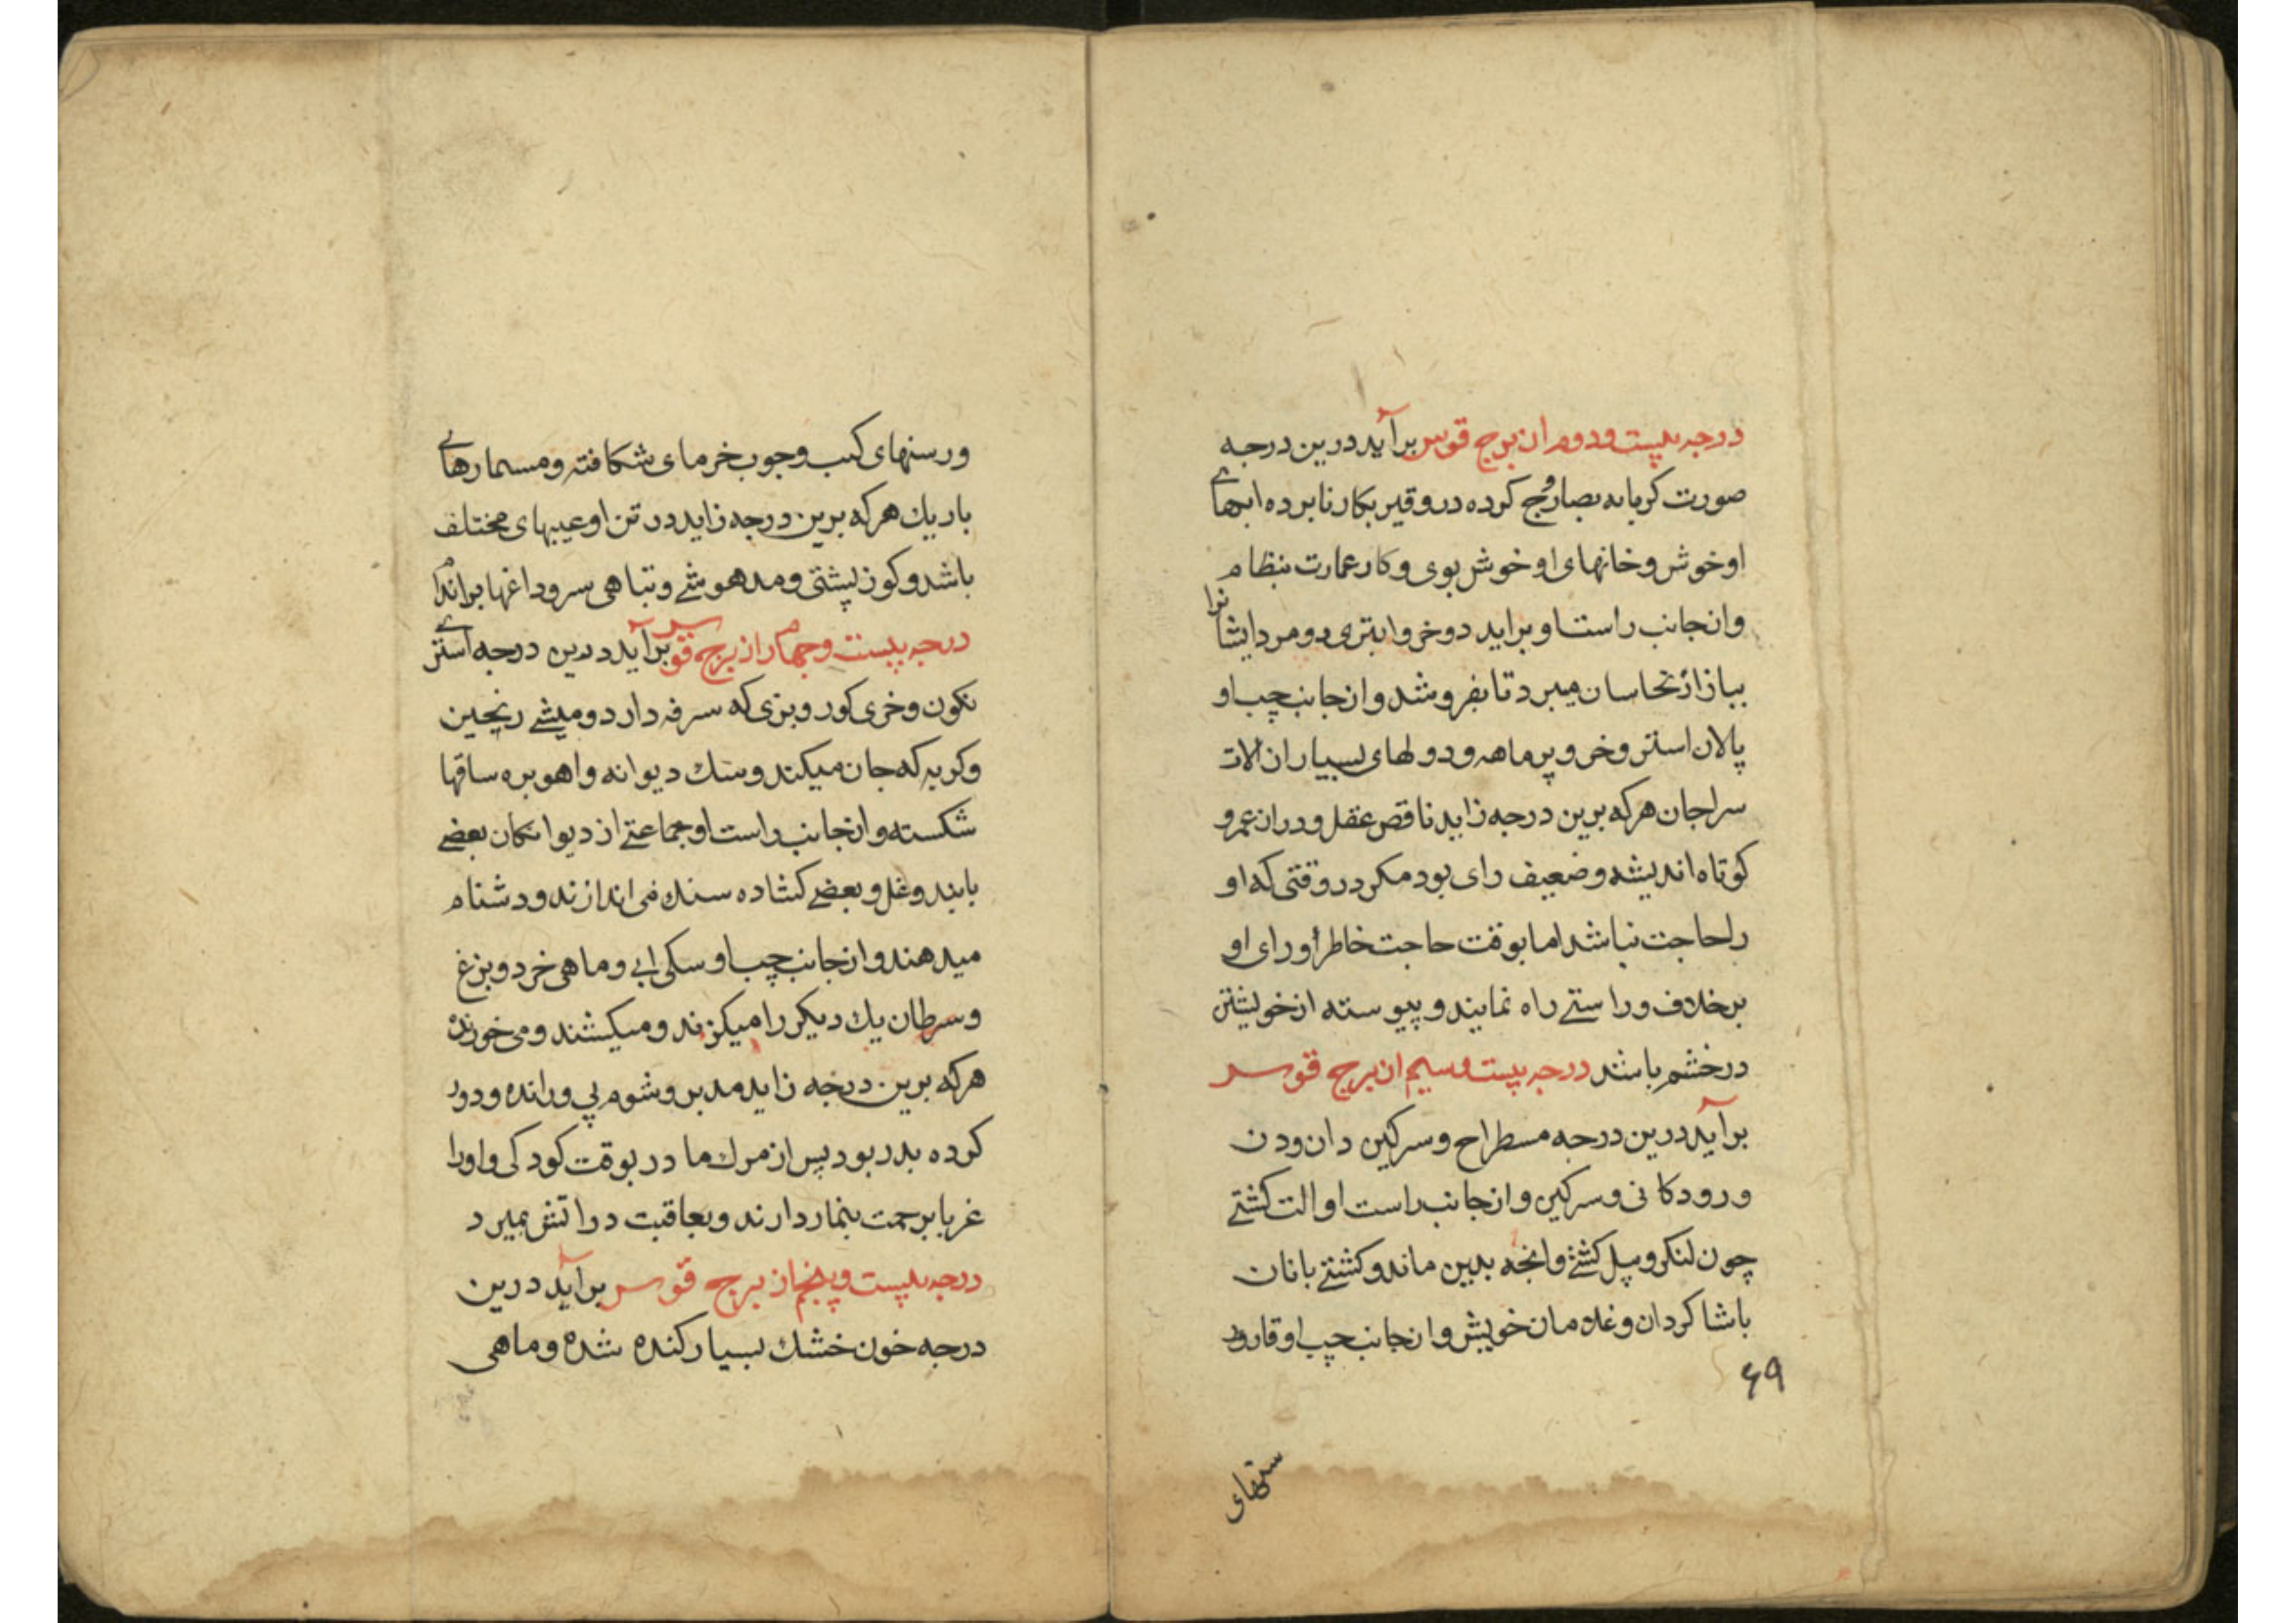 درجه بیست ودوم از برج قوس برآید درین درجه
صورت کرمابه بصاروج کرده در وقیر بکار نابرده ابهای
او خوش و خانهای او خوش بوی و کار عمارت بنظام
وازجانب راست او براید دوخر واستری دومرد ایشانرا
ببازار نخاسان میبرد تا بفروشد وازجانب چپ او
پالان استر وخر و پرماهه و دولهای بسیار از الات
سراجان هرکه برین درجه زاید ناقص عقل ودراز عمر و
کوتاه اندیشه وضعیف رای بود مکر در وقتی که او
را حاجت نباشد اما بوقت حاجت خاطر او رای او
برخلاف وراستے راه نمایند و پیوسته از خویشتن
درخشم باشد درجه بیست وسیم از برج قوس
برآید درین درجه مسطراح وسرکین دان ودن
ورودکانی وسرکین وازجانب راست او الت کشتے
چون لنکر وبیل کشتے وانچه بدین ماند وکشتے بانان
باشاکردان وغلامان خویش وازجانب چپ او قارور
۶۹
ستهای
ورسنهای کنب وچوب خرمای شکافته ومسمارهای
باریك هرکه برین درجه زاید در تن او عیبهای مختلف
باشد وکوزپشتی ومدهوشے وتباهی سر وداغها براندام
درجه بیست وچهارم از برج قوس برآید درین درجه استرے
نکون وخری کور وبزی که سرفه دارد ومیشے رنجین
وکربه که جان میکند وسك دیوانه واهو بره ساقها
شکسته وازجانب راست او جماعتے از دیوانکان بعضے
بابند وغل و بعضے کشاده سنك می اندازند ودشنام
میدهند وازجانب چپ او سکی ابی وماهی خرد وبزغ
وسرطان یك دیکر را میکزند ومیکشند ومی خورند
هرکه برین درجه زاید مدبر وشوم پی ورانده ودور
کرده پدر بود پس از مرك مادر بوقت کودکی واورا
غربا برحمت بتیمار دارند وبعاقبت در اتش بمیرد
درجه بیست وپنجم از برج قوس برآید درین
درجه خون خشك بسیار کنده شده وماهی